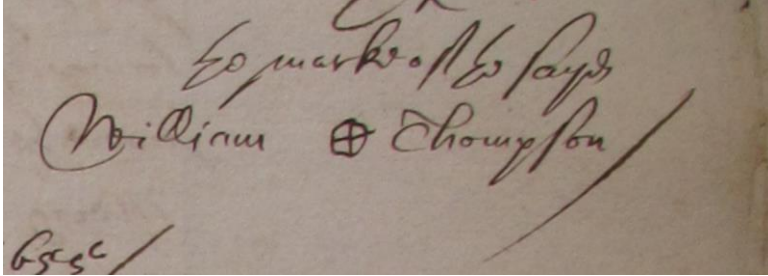 the marke of the sayd
William ⊕ Thompson